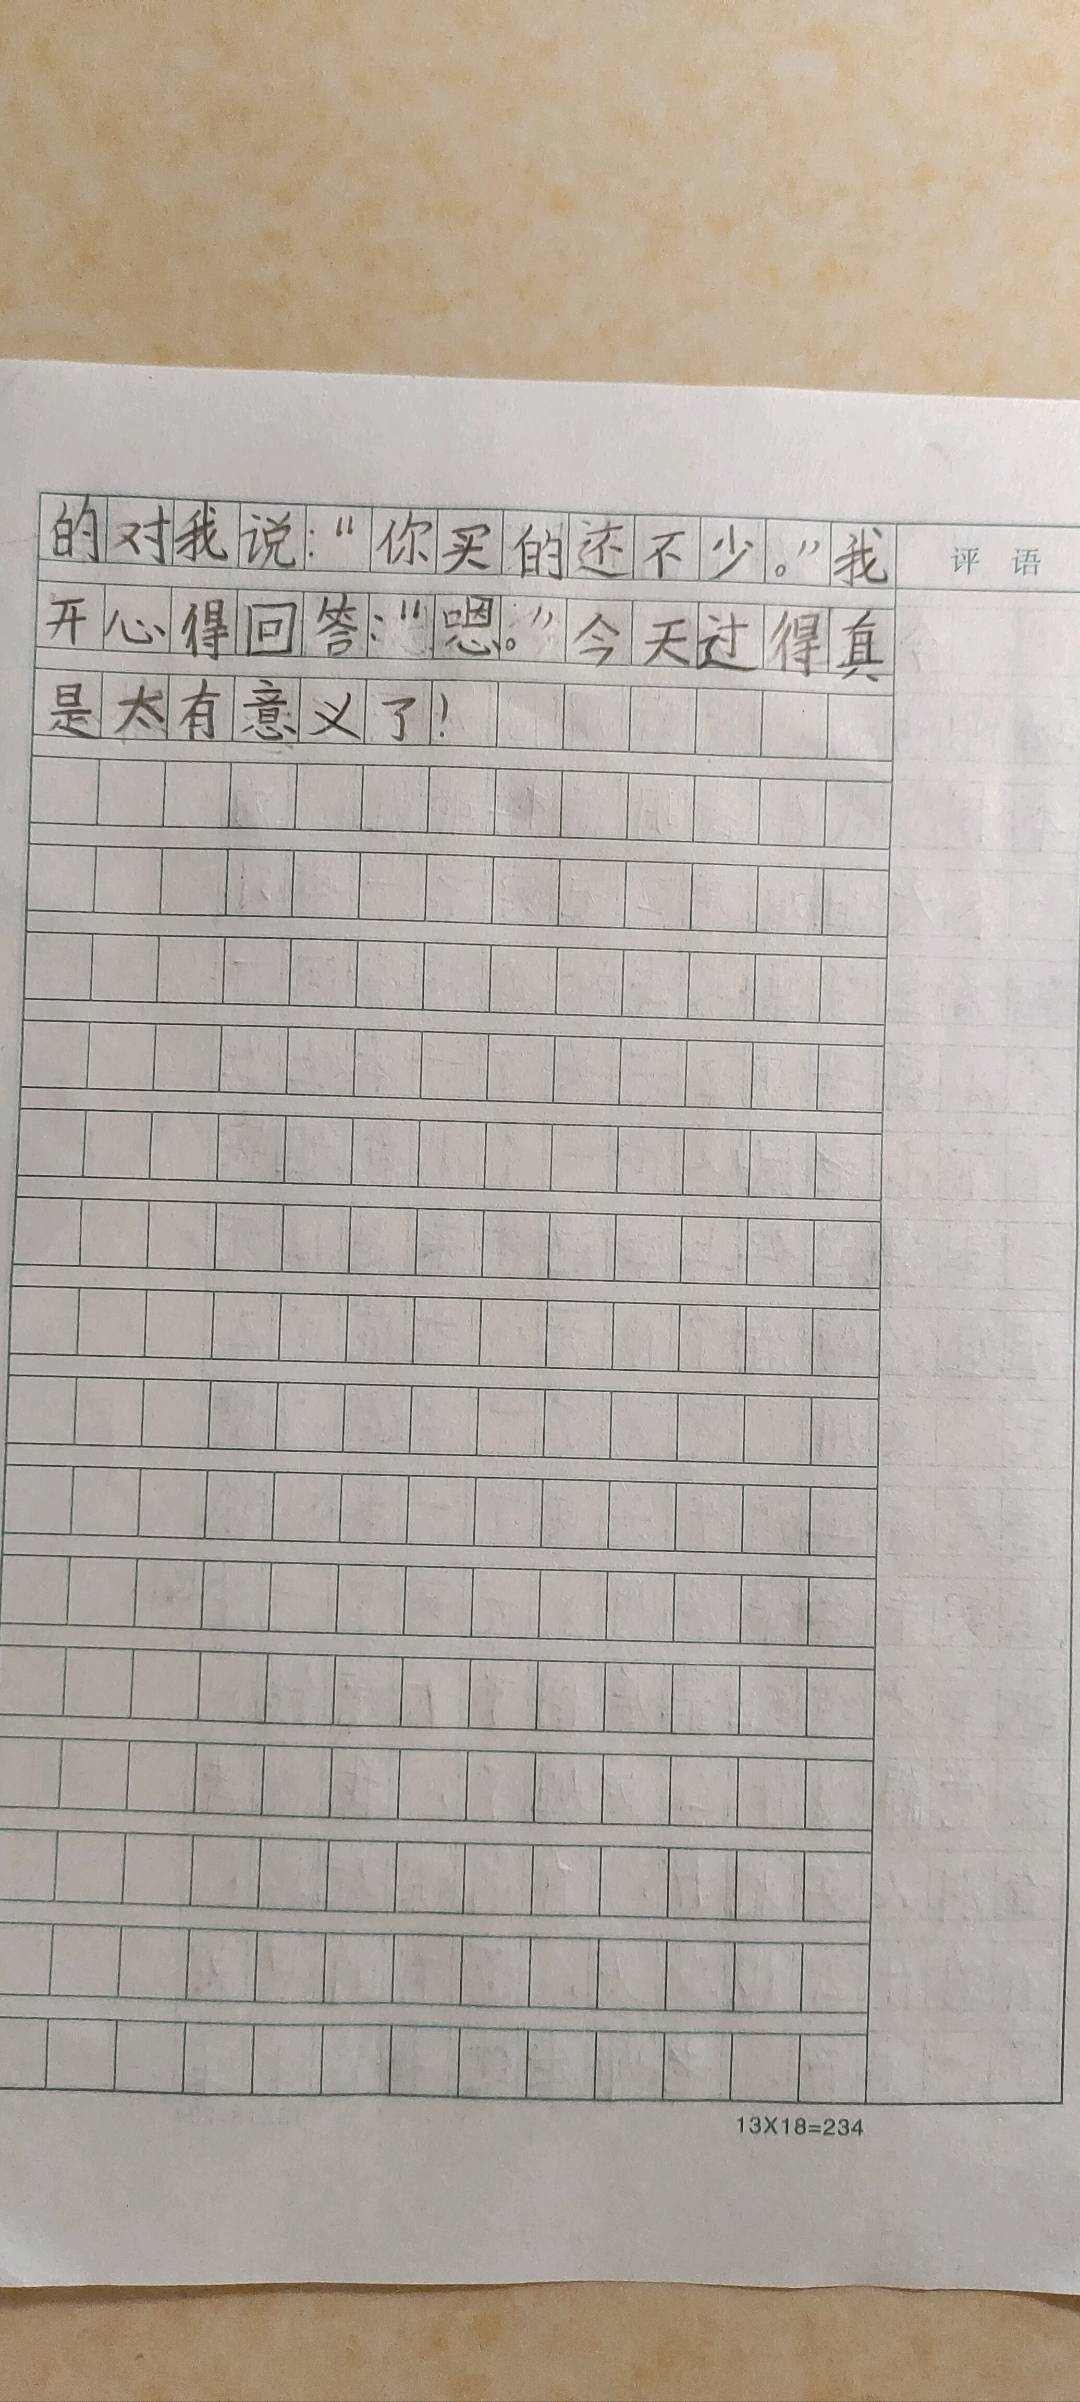 的对我说：“你买的还不少。”我
评 语
开心得回答：“嗯。”今天过得真
是太有意义了！
13X18=234